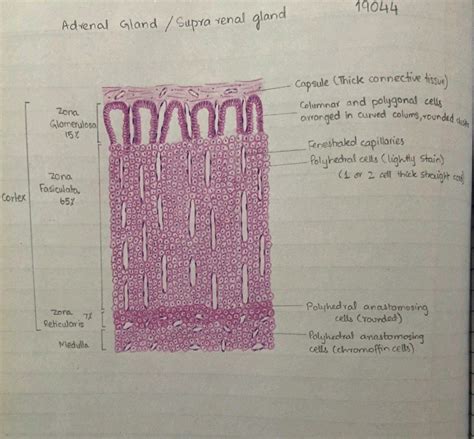 19044
Adrenal Gland / Supra renal gland
Capsule (Thick connective tissue)
Columnar and polygonal cells
arranged in curved colums, rounded
Zona
Glomerulosa
15%
Fenestrated capillaries
Polyhedral cells (lightly stain)
(1 or 2 cell thick straight
Zona
Fasiculata
65%
Cortex
Zona 7%
Reticularis
Polyhedral anastomosing
cells (rounded)
Medulla
Polyhedral anastomosing
cells (chromoffin cells)